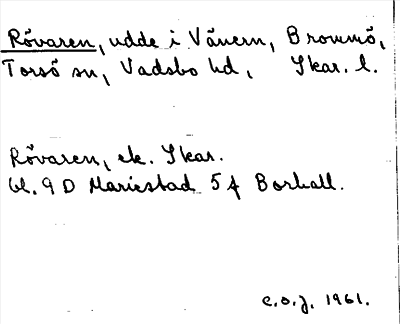 Rövaren, udde i Vänern, Brommö,
Torsö sn, Vadsbo hd, Skar. l.
Rövaren, ek. Skar.
bl. 9 D Mariestad 5 f Borhall.
c.o.j. 1961.